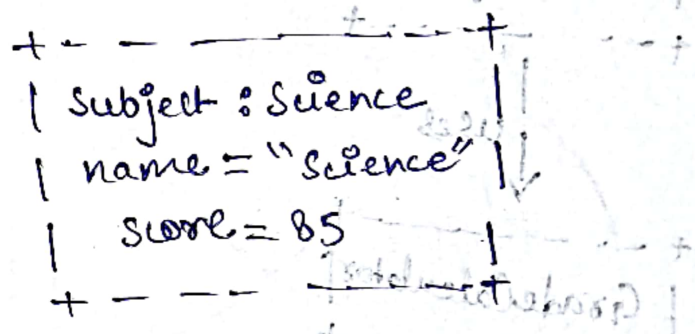 + - - - - - - +
| Subject : Science |
| name = "Science" |
| score = 85 |
+ - - - - - - +